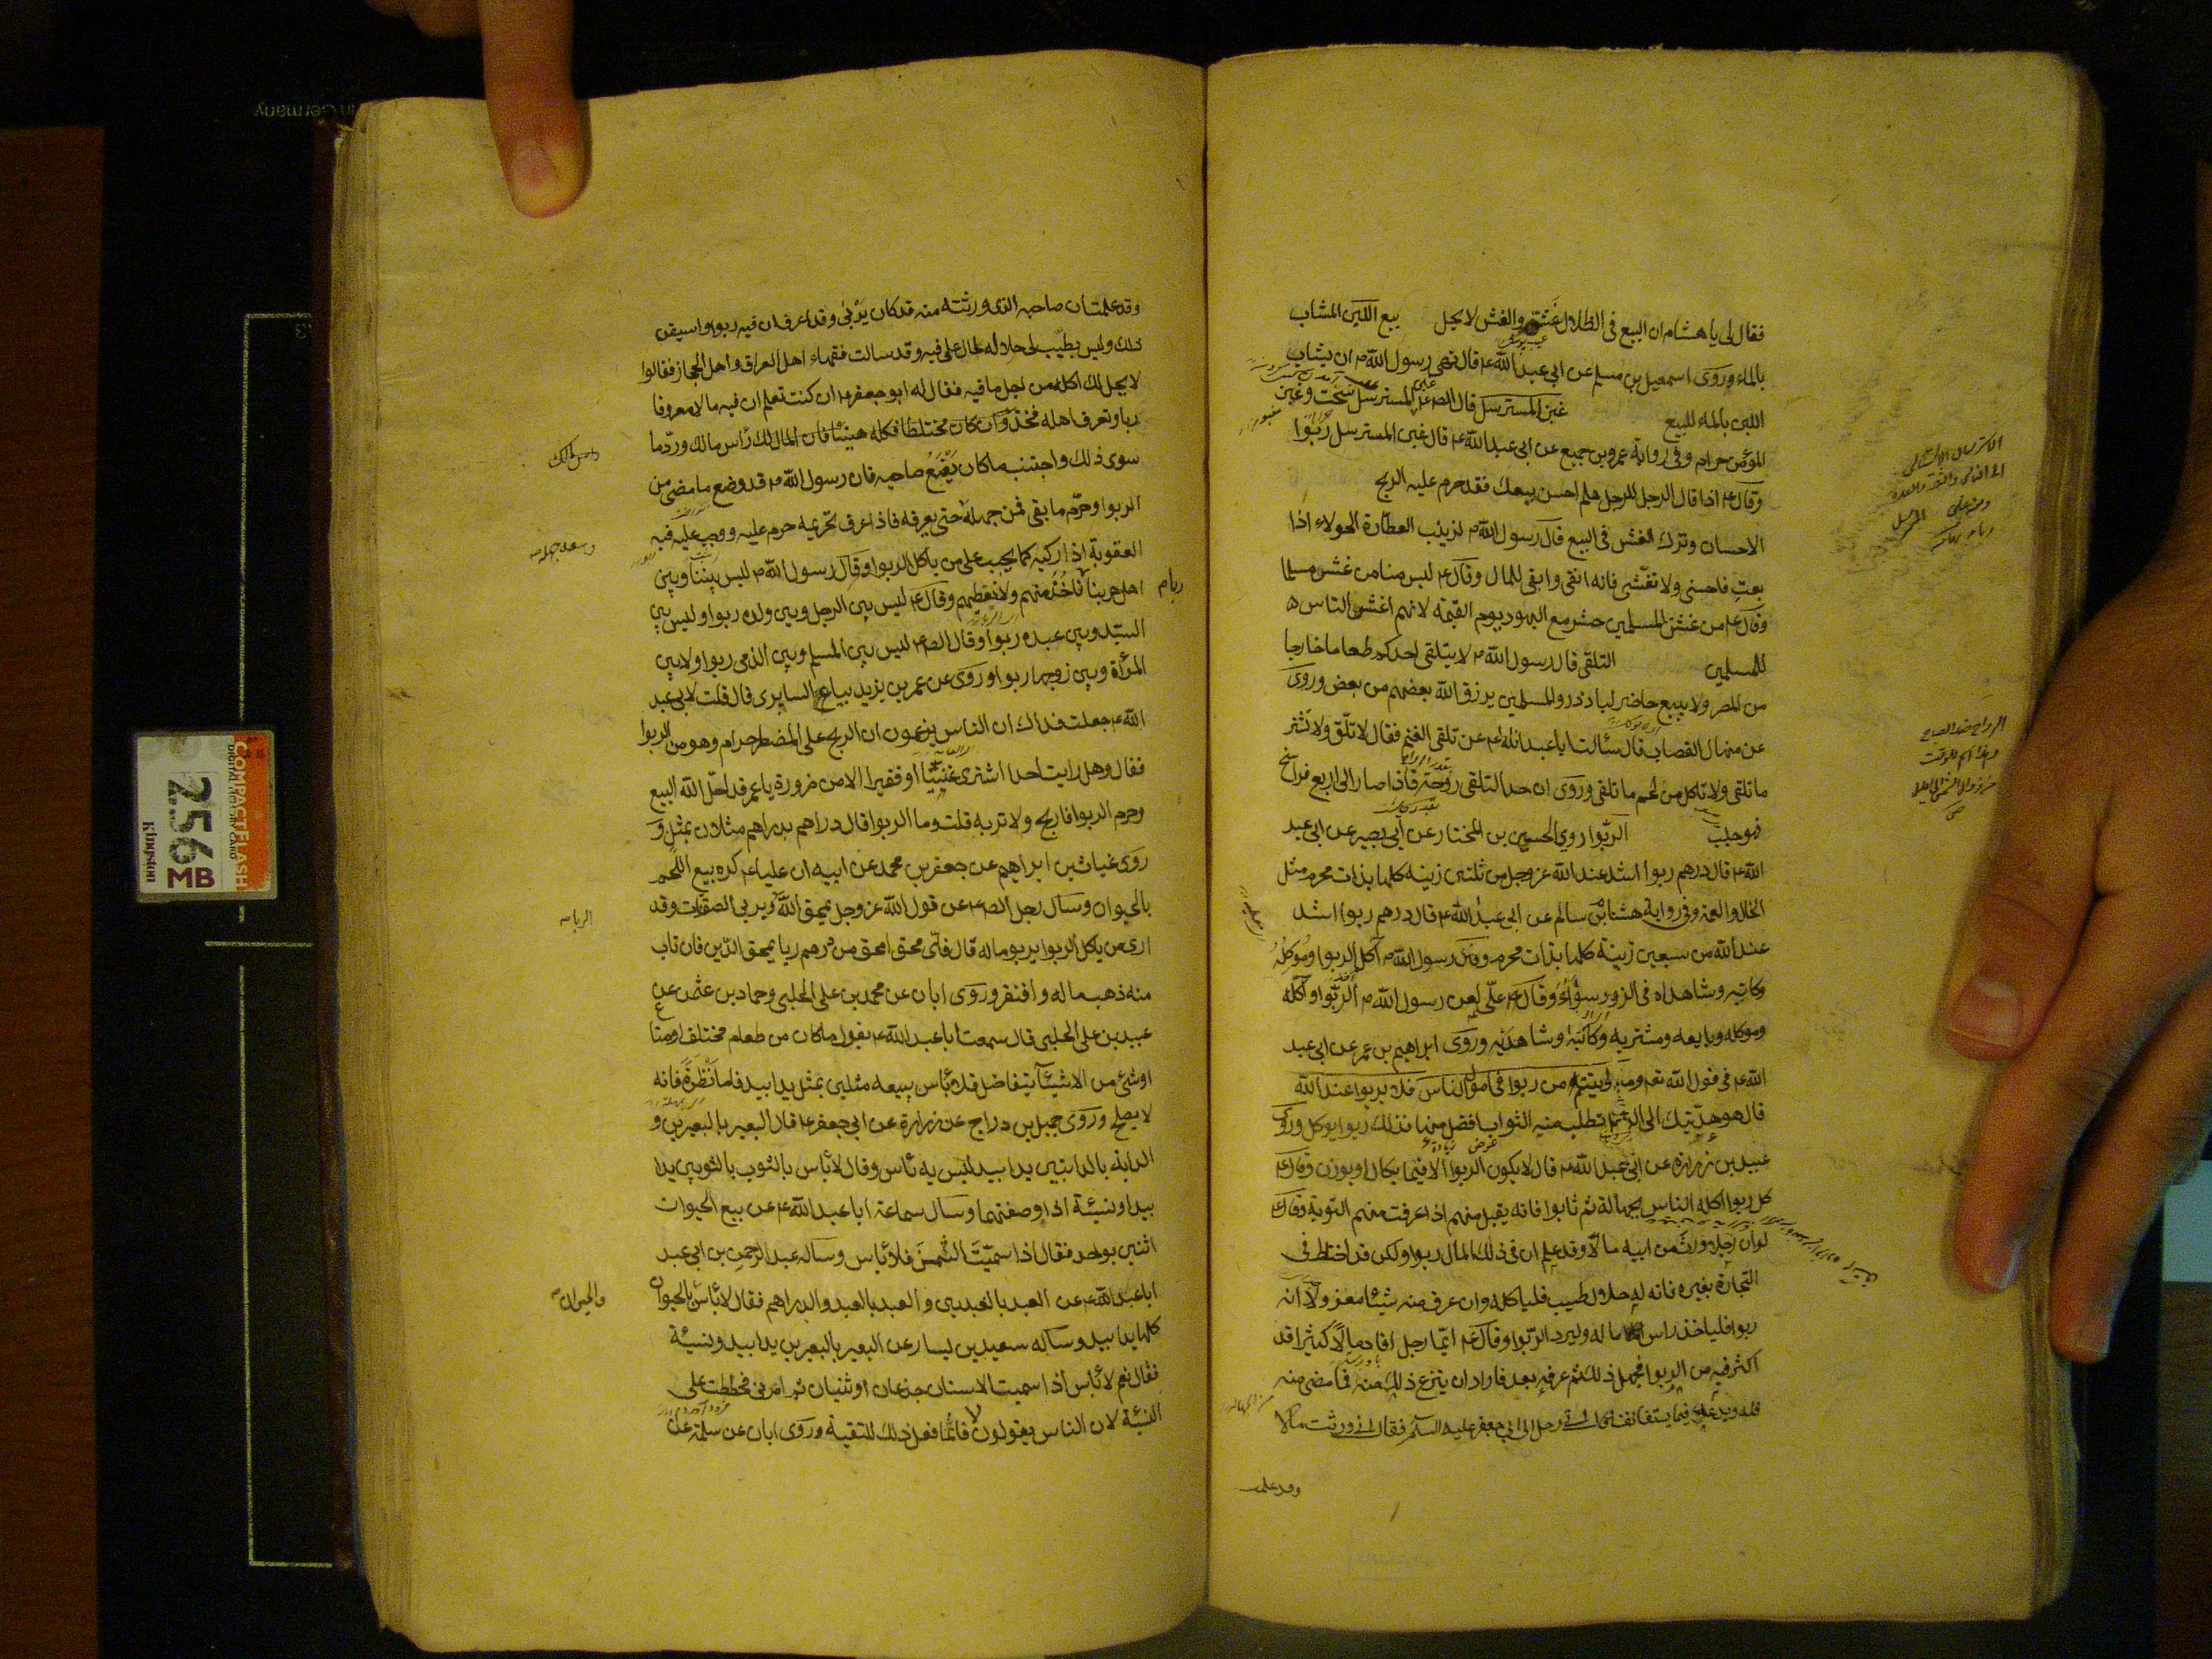 فقال لى يا هشام ان البيع فى الظلال غش والغش لا يحل بيع اللبن المشاب
بالماء وروى اسمعيل بن مسلم عن ابى عبد الله ع قال نهى رسول الله ص ان يشاب
اللبن بالماء للبيع غبن المسترسل قال الص ع غبن المسترسل سحت وغبن
المؤمن حرام وفى رواية عمرو بن جميع عن ابى عبد الله ع قال غبن المسترسل ربوا
وقال ع اذا قال الرجل للرجل هلم احسن بيعك فقد حرم عليه الربح
الاحسان وترك الغش فى البيع قال رسول الله ص لزينب العطارة الحولاء اذا
بعت فاحسنى ولا تغشى فانه انقى وابقى للمال وقال ع ليس منا من غش مسلما
وقال ع من غش المسلمين حشر مع اليهود يوم القيمة لانهم اغش الناس
للمسلمين التلقى قال رسول الله ص لا يتلقى احدكم طعاما خارجا
من المصر ولا يبيع حاضر لباد ذروا المسلمين يرزق الله بعضهم من بعض وروى
عن منهال القصاب قال سألت ابا عبد الله ع عن تلقى الغنم فقال لا تلق ولا تشتر
ما تلقى ولا تاكل من لحم ما تلقى وروى ان حد التلقى روحة فاذا صار الى اربع فراسخ
فهو جلب الربوا روى الحسين بن المختار عن ابى بصير عن ابى عبد
الله ع قال درهم ربوا اشد عند الله عز وجل من ثلثين زنية كلها بذات محرم مثل
الخال والعمة وفى رواية هشام بن سالم عن ابى عبد الله ع قال درهم ربوا اشد
عند الله من سبعين زنية كلها بذات محرم وقال رسول الله ص آكل الربوا وموكله
وكاتبه وشاهداه فى الزور سواء وقال ع على لعن رسول الله ص الربوا وآكله
وموكله وبايعه ومشتريه وكاتبه وشاهديه وروى ابراهيم بن عمر عن ابى عبد
الله ع فى قول الله تع وما اتيتم من ربوا فى اموال الناس فلا يربوا عند الله
قال هو هديتك الى الرجل تطلب منه الثواب افضل منها فذلك ربوا يوكل وروى
عبيد بن زرارة عن ابى عبد الله ع قال لا يكون الربوا الا فيما يكال او يوزن وقال ع
كل ربوا اكله الناس بجهالة ثم تابوا فانه يقبل منهم اذا عرفت منهم التوبة وقال ع
لو ان رجلا ورث من ابيه مالا وقد علم ان فى ذلك المال ربوا ولكن قد اختلط فى
التجارة بغيره فانه له حلال طيب فلياكله وان عرف منه شيئا معزولا انه
ربوا فلياخذ راس ماله وليرد الربوا وقال ع ايما رجل افاد مالا كثيرا قد
اكثر فيه من الربوا فجهل ذلك ثم عرفه بعد فاراد ان ينزع ذلك منه فما مضى منه
فله ويدعه فيما يستأنف اتى رجل الى ابى جعفر عليه السلم فقال انى ورثت مالا
وقد علمت
وقد علمت ان صاحبه الذى ورثته منه قد كان يربى وقد اعرف ان فيه ربوا واستيقن
ذلك وليس يطيب لى حلاله لحال علمى فيه وقد سالت فقهاء اهل العراق واهل الحجاز فقالوا
لا يحل لك اكله من اجل ما فيه فقال له ابو جعفر ع ان كنت تعلم ان فيه مالا معروفا
ربا وتعرف اهله فخذ وان كان مختلطا فكله هنيئا فان المال لك راس مالك ورد ما
سوى ذلك واجتنب ما كان يصنع صاحبه فان رسول الله ص قد وضع ما مضى من
الربوا وحرم ما بقى فمن جهله حتى يعرفه فاذا عرف تحريمه حرم عليه ووجب عليه فيه
العقوبة اذا ركبه كما يجب على من ياكل الربوا وقال رسول الله ص ليس بيننا وبين
اهل حربنا ناخذ منهم ولا نعطيهم وقال ع ليس بين الرجل وبين ولده ربوا وليس بين
السيد وبين عبده ربوا وقال الص ع ليس بين المسلم وبين الذمى ربوا ولا بين
المرأة وبين زوجها ربوا وروى عن عمر بن يزيد بياع السابرى قال قلت لابى عبد
الله ع جعلت فداك ان الناس يزعمون ان الربح على المضطر حرام وهو من الربوا
فقال وهل رايت احدا اشترى غنيا او فقيرا الا من ضرورة يا عمر قد احل الله البيع
وحرم الربوا فاربح ولا تربه قلت وما الربوا قال دراهم بدراهم مثلان بمثل و
روى غياث بن ابراهيم عن جعفر بن محمد عن ابيه ان عليا ع كره بيع اللحم
بالحيوان وسال رجل الص ع عن قول الله عز وجل يمحق الله ويربى الصدقات وقد
ارى من ياكل الربوا يربو ماله قال فاى محق امحق من درهم ربا يمحق الدين فان تاب
منه ذهب ماله وافتقر وروى ابان عن محمد بن على الحلبى وحماد بن عثمن عن
عبيد بن على الحلبى قال سمعت ابا عبد الله ع يقول ما كان من طعام مختلف او متاع
او شئ من الاشياء يتفاضل فلا باس ببيعه مثلين بمثل يدا بيد فاما نظرة فانه
لا يصلح وروى جميل بن دراج عن زرارة عن ابى جعفر ع قال البعير بالبعيرين و
الدابة بالدابتين يدا بيد ليس به باس وقال لا باس بالثوب بالثوبين يدا
بيد ونسيئة اذا وصفتهما وسال سماعة ابا عبد الله ع عن بيع الحيوان
اثنين بواحد فقال اذا سميت الثمن فلا باس وساله عبد الرحمن بن ابى عبد
ابا عبد الله ع عن العبد بالعبدين والعبد بالعبد والدراهم فقال لا باس بالحيوان
كلها يدا بيد وساله سعيد بن يسار عن البعير بالبعيرين يدا بيد ونسيئة
فقال نعم لا باس اذا سميت الاسنان جذعان او ثنيان ثم امرنى فخططت على
النسئة لان الناس يقولون لا فانما فعل ذلك للتقية وروى ابان عن سلمة عن
in Germany
COMPACTFLASH
DIGITAL MEDIA CARD
256
MB
Kingston